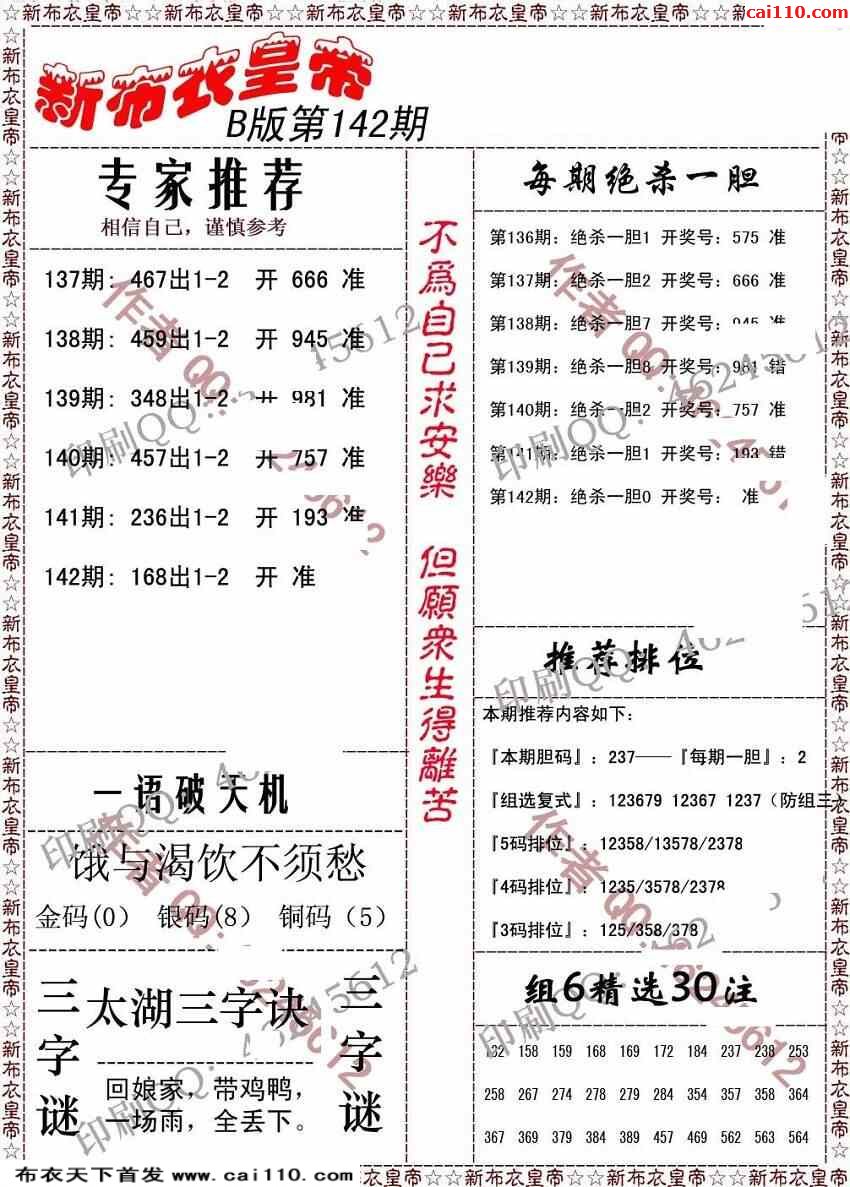 ☆☆新布衣皇帝☆☆新布衣皇帝☆☆新布衣皇帝☆☆新布衣皇帝☆☆新布衣皇帝☆☆
cai110.com
新布衣皇帝
B版第142期
专家推荐
相信自己，谨慎参考
137期: 467出1-2 开 666 准
138期: 459出1-2 开 945 准
139期: 348出1-2 开 981 准
140期: 457出1-2 开 757 准
141期: 236出1-2 开 193 准
142期: 168出1-2 开 准
一语破天机
饿与渴饮不须愁
金码(0) 银码(8) 铜码（5）
三字谜
太湖三字诀
回娘家，带鸡鸭，
一场雨，全丢下。
三字谜
不爲自己求安樂 但願衆生得離苦
每期绝杀一胆
第136期: 绝杀一胆1 开奖号: 575 准
第137期: 绝杀一胆2 开奖号: 666 准
第138期: 绝杀一胆7 开奖号: 945 准
第139期: 绝杀一胆8 开奖号: 981 错
第140期: 绝杀一胆2 开奖号: 757 准
第141期: 绝杀一胆1 开奖号: 193 错
第142期: 绝杀一胆0 开奖号: 准
推荐排位
本期推荐内容如下:
『本期胆码』: 237——『每期一胆』: 2
『组选复式』: 123679 12367 1237（防组三）
『5码排位』: 12358/13578/2378
『4码排位』: 1235/3578/2378
『3码排位』: 125/358/378
组6精选30注
132 158 159 168 169 172 184 237 238 253
258 267 274 278 279 284 354 357 358 364
367 369 379 384 389 457 469 562 563 564
布衣天下首发 www.cai110.com
新布衣皇帝☆☆新布衣皇帝☆☆新布衣皇帝☆☆新布衣皇帝☆☆
作者QQ:
印刷QQ: 46245612